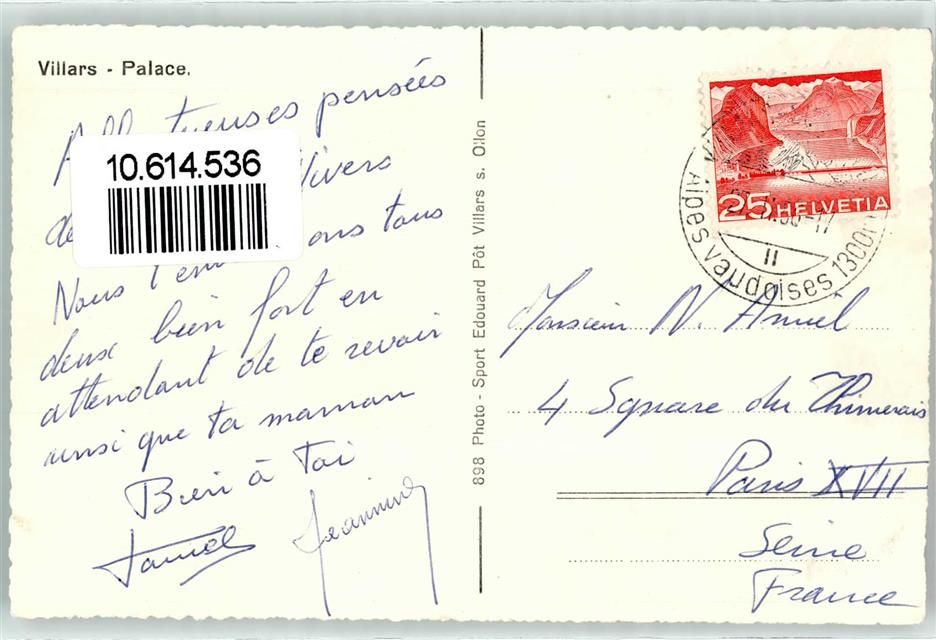 Villars - Palace.
pensées
10.614.536
de
Nous tous
deux bien fort en
attendant de te revoir
ainsi que ta maman
Bien à Toi
Jeannine
898 Photo - Sport Edouard Pôt Villars s. Ollon
25 HELVETIA
Alpes vaudoises 1300m
II
Monsieur N. Amiel
4 Square du Thimerais
Paris XVII
Seine
France